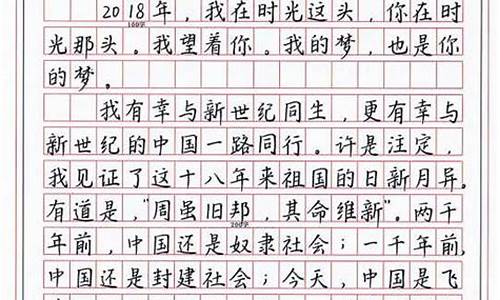 2018年，我在时光这头，你在时
100字
光那头。我望着你。我的梦，也是你
的梦。
我有幸与新世纪同生，更有幸与
新世纪的中国一路同行。许是注定，
我见证了这十八年来祖国的日新月异。
有道是，“周虽旧邦，其命维新”。两千
200字
年前，中国还是奴隶社会；一千年前，
中国还是封建社会；今天，中国是飞